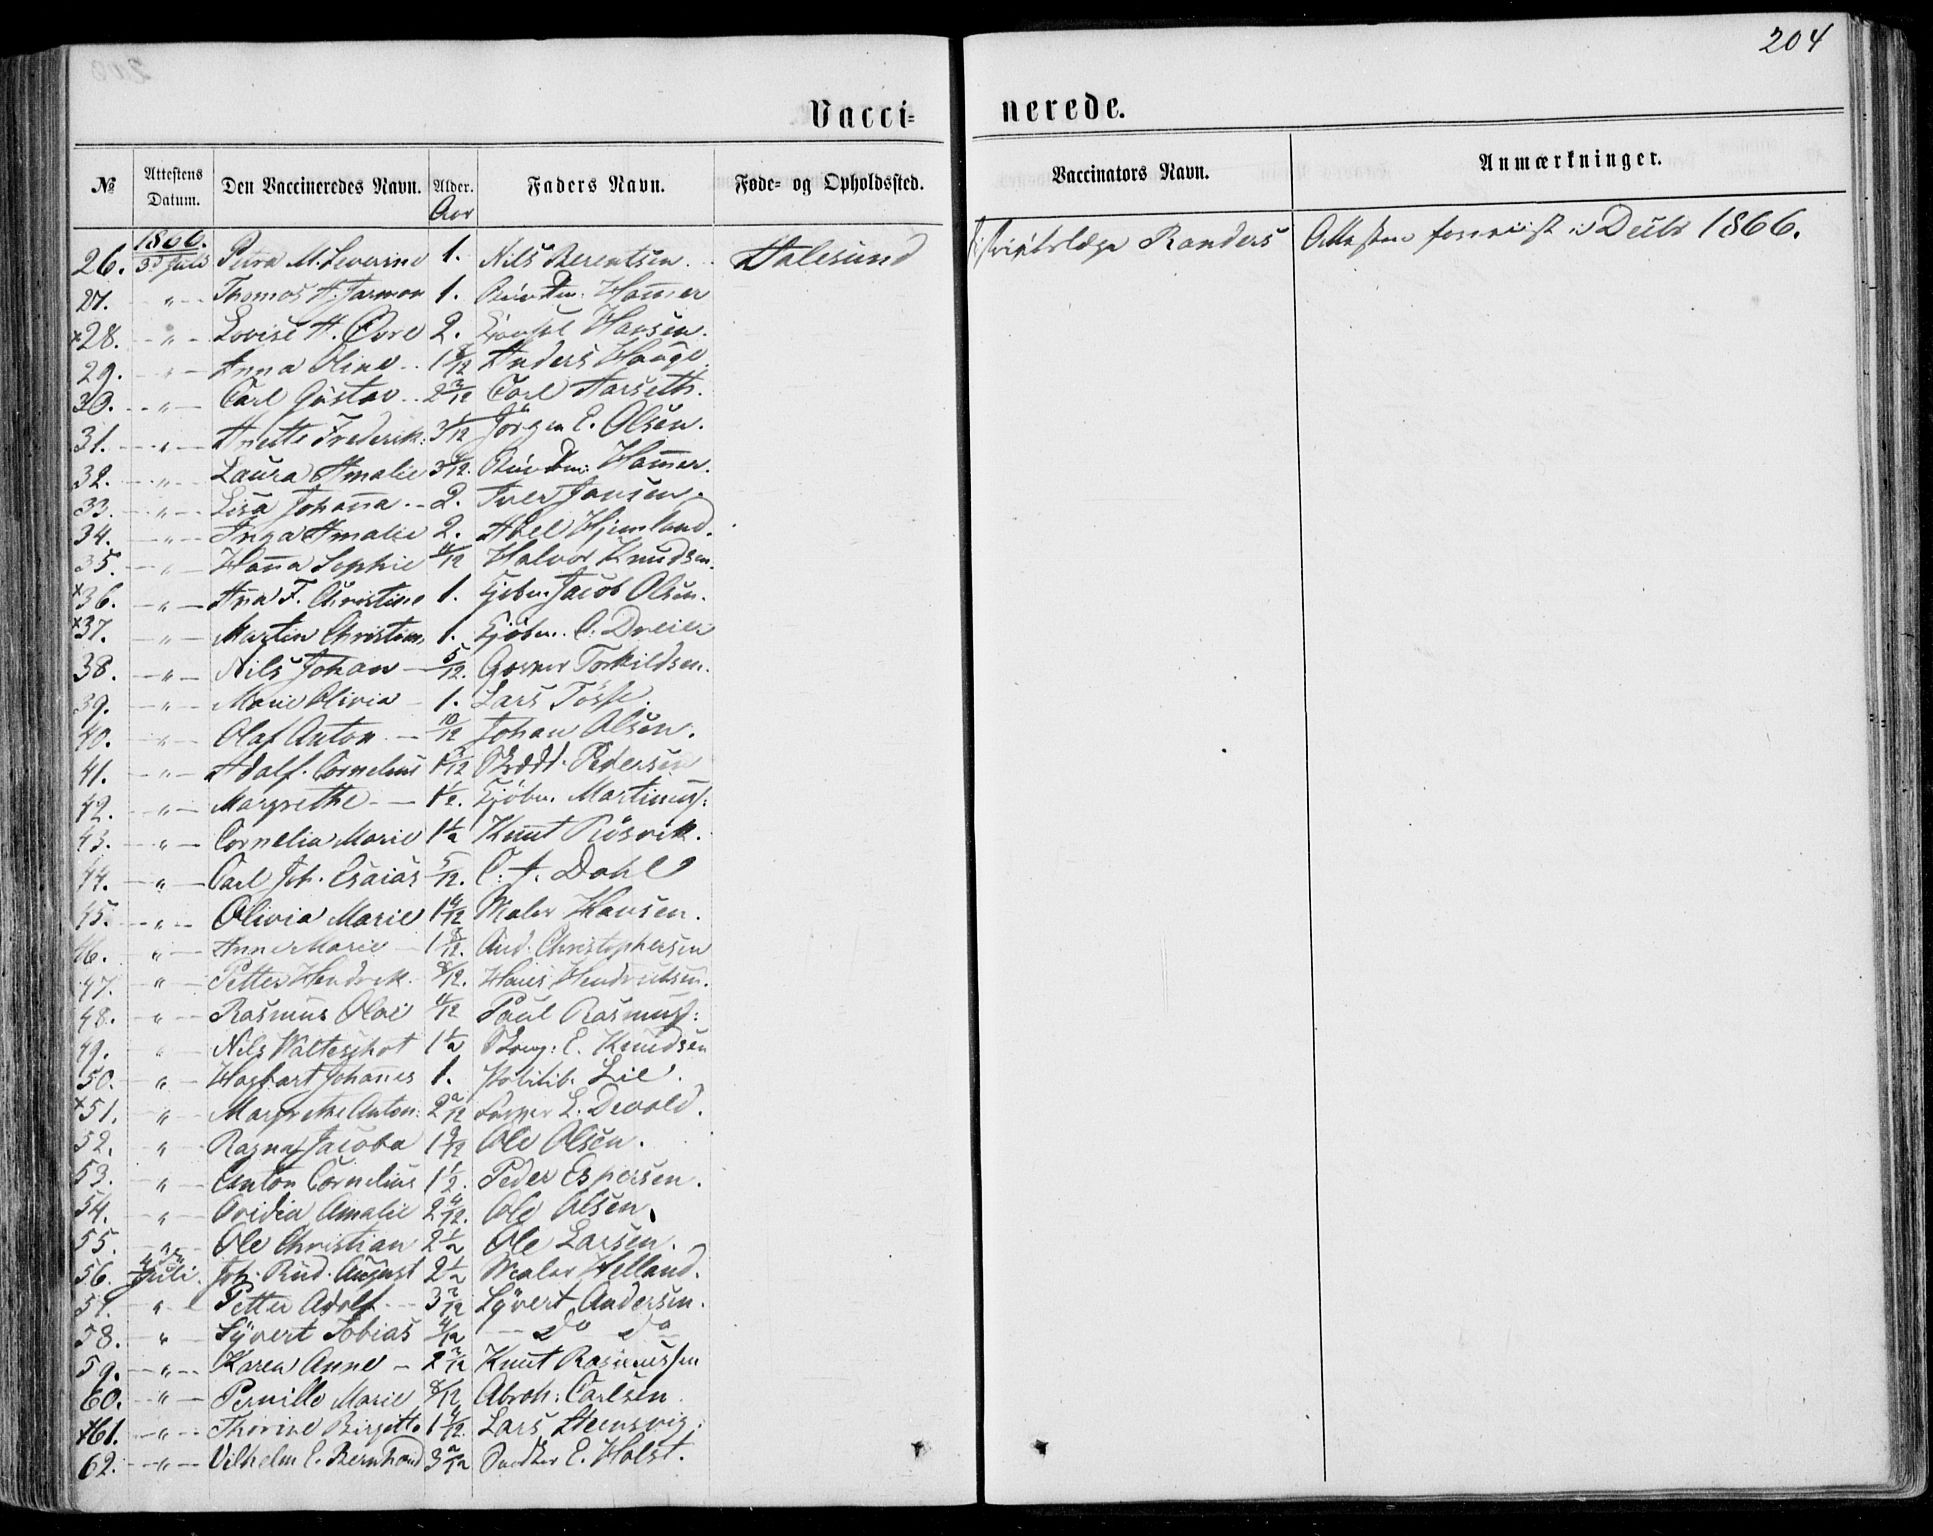 204
Vacci= nerede.
№ Attestens Datum. Den Vaccineredes Navn. Alder. Faders Navn. Føde= og Opholdssted. Vaccinators Navn. Anmærkninger.
Aar
1866.
26. 3d Juli Petra M. Severine 1. Nils Berentsen. Aalesund Distriktslæge Randers Attesten foreviist i Decbr 1866.
27. " Thomas H. Jarman 1. Hammer
*28. " Lovise H. Øvre 2. Hansen.
29. " Anna Oline 1 8/12 Anders Hauge
30. " Carl Gustav 2 3/12 Carl Aarseth.
31. " Anette Frederik: 3 1/12 Jörgen E. Olsen.
32. " Laura Amalie 3 /12. Hammer.
33. " Lisa Johanna 2. Iver Jansen.
34. " Inga Amalie 2. Abel Hjemland.
35. " Hanna Sophie /12 Halvor Knudsen.
*36. " Ana F. Christine 1. Kjøbm. Jacob Olsen.
*37. " Martin Christian 1. Kjøbm. C. Dreier
38. " Nils Johan 5/12. Torkildsen.
39. " Marie Olivia 1. Lars Tösse.
40. " Olaf Anton 10/12 Johan Olsen.
41. " Adolf Cornelius 1 /12 Skrædd. Pedersen
42. " Margrethe 1 1/2. Kjøbm. Martinuss:
43. " Cornelia Marie 1 1/2 Knut Rösvik.
44. " Carl Joh. Esaias 5/12. C. A. Dahl
45. " Olivia Marie 1 /12 Maler Hansen.
46. " Anne Marie 1 8/12. And. Christophersen
47. " Petter Hendrik 8/12. Hans Hendriksen.
48. " Rasmus Olai /12 Paul Rasmuss:
49. " Nils Walteschot 1 1/2 E. Knudsen
50. " Hagbart Johannes 1. Politib. Lie.
*51. " Margrethe Anton: 2 2/12 L. Devold.
52. " Ragna Jacoba 1 9/12 Ole Olsen.
53. " Anton Cornelius 1 1/2. Peder Espersen.
54. " Ovidia Amalie 2 /12. Ole Olsen.
55. " Ole Christian 2 1/2 Ole Larsen.
56. 4de Juli. Joh. Rud. August 2 1/2 Maler Helland.
57. " Petter Adolf 3 2/12 Syvert Andersen.
58. " Syvert Tobias /12 do do
59. " Karen Anne 2 2/12 Knut Rasmussen
60. " Pernille Marie 8/12 Abrah: Carlsen
*61. " Thorine Birgitte 1 /12. Lars Stensvig.
62. " Vilhelm E. Bernhard 3 2/12 Snedker E. Holst.